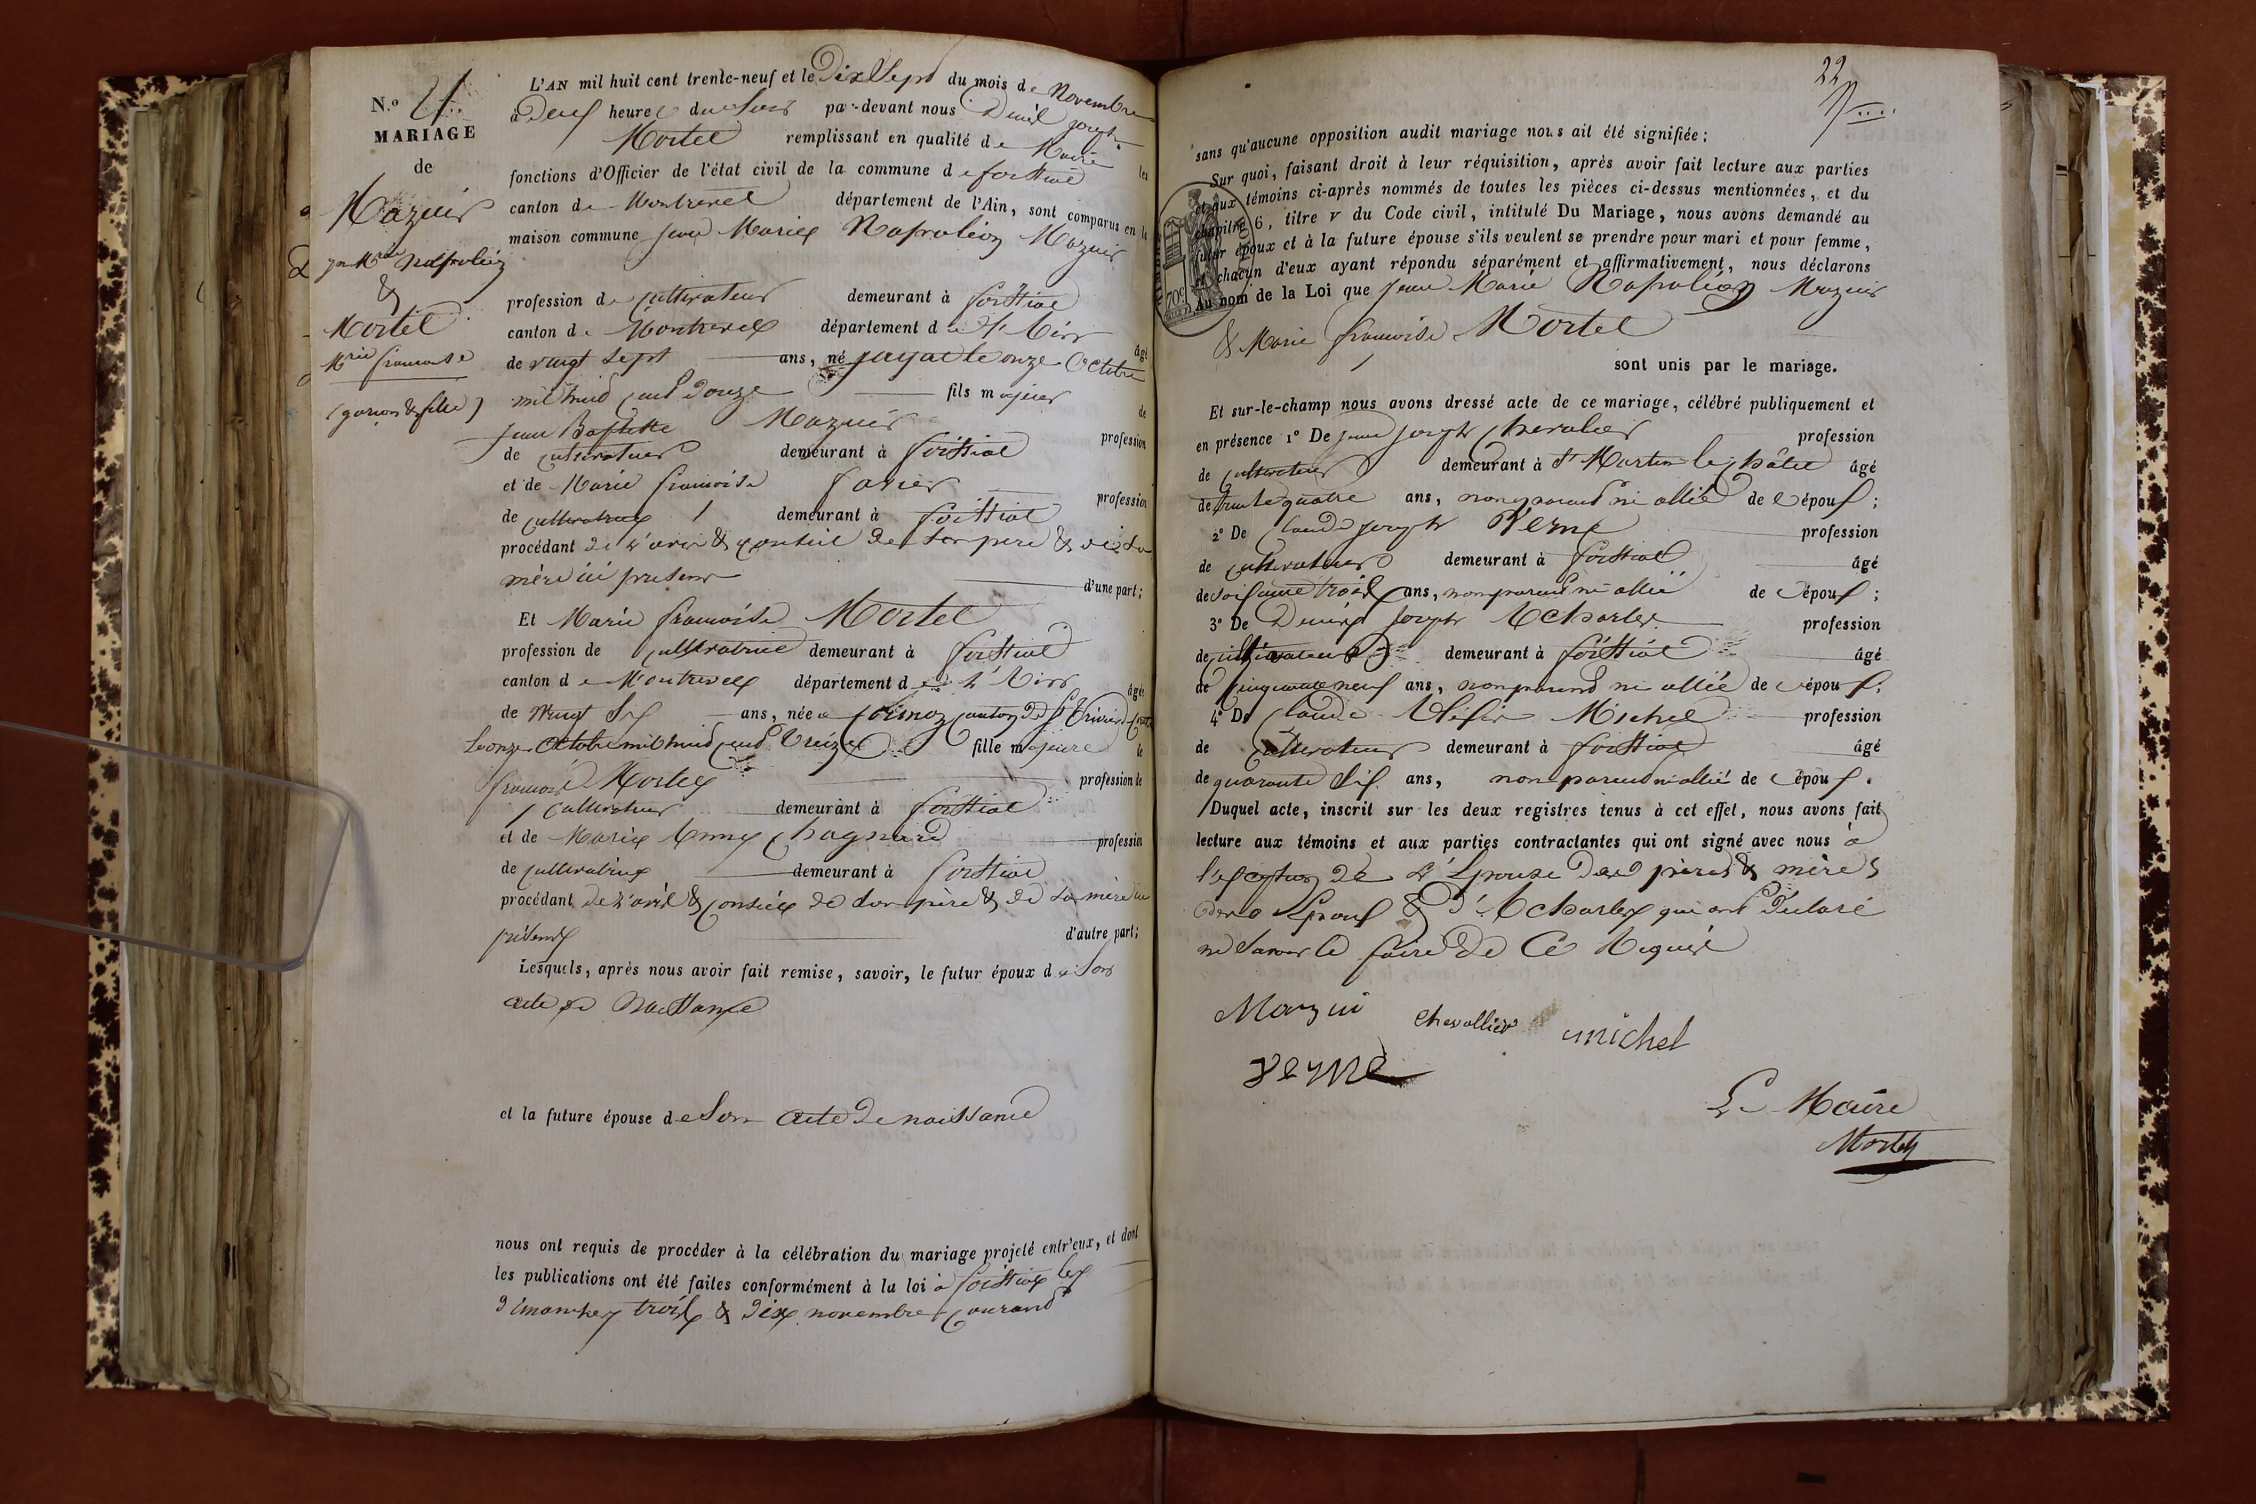 N.o 4
MARIAGE
de
Mazuir
Jn Mrie Napoléon
&
Mortel
Mrie françoise
(garçon & fille)
L'AN mil huit cent trente-neuf et le Dix Sept du mois de Novembre
à Deux heures du Soir par-devant nous Denis joseph
Mortel remplissant en qualité de Maire les
fonctions d'Officier de l'état civil de la commune de foissiat
canton de Montrevel département de l'Ain, sont comparus en la
maison commune jean Marie Napoléon Mazuir
profession de cultivateur demeurant à foissiat
canton de Montrevel département de l'Ain âgé
de vingt Sept ans, né à jayat le onze Octobre
mil huit cent Douze fils majeur de
jean Baptiste Mazuir profession
de cultivateur demeurant à foissiat
et de Marie françoise profession
de cultivatrice demeurant à foissiat
procédant de l'avis & conseil de son père & de Sa
mère ici présents d'une part;
Et Marie françoise Mortel
profession de cultivatrice demeurant à foissiat
canton de Montrevel département de l'Ain âgée
de Vingt Six ans, née à canton de St Trivier
le onze Octobre mil huit cent treize fille majeure de
françois Mortel profession de
cultivateur demeurant à foissiat
et de Marie Anne Chagnard profession
de cultivatrice demeurant à foissiat
procédant de l'avis & conseil de son père & de sa mère ici
présents d'autre part;
Lesquels, après nous avoir fait remise, savoir, le futur époux de Son
acte de Naissance
et la future épouse de Son acte de naissance
nous ont requis de procéder à la célébration du mariage projeté entr'eux, et dont
les publications ont été faites conformément à la loi à foissiat les
dimanches trois & dix novembre courant
22
sans qu'aucune opposition audit mariage nous ait été signifiée;
Sur quoi, faisant droit à leur réquisition, après avoir fait lecture aux parties
et aux témoins ci-après nommés de toutes les pièces ci-dessus mentionnées, et du
chapitre 6, titre v du Code civil, intitulé Du Mariage, nous avons demandé au
futur époux et à la future épouse s'ils veulent se prendre pour mari et pour femme,
et chacun d'eux ayant répondu séparément et affirmativement, nous déclarons
Au nom de la Loi que jean Marie Napoléon Mazuir
& Marie françoise Mortel
sont unis par le mariage.
Et sur-le-champ nous avons dressé acte de ce mariage, célébré publiquement et
en présence 1º De jean joseph Chevalier profession
de cultivateur demeurant à St Martin le châtel âgé
de trente quatre ans, non parent ni allié de l'époux;
2º De Claude joseph Verne profession
de cultivateur demeurant à foissiat âgé
de soixante trois ans, non parent ni allié de l'époux;
3º De Denis joseph profession
de cultivateur demeurant à foissiat âgé
de cinquante neuf ans, non parent ni allié de l'époux;
4º De Claude Michel profession
de Cultivateur demeurant à foissiat âgé
de quarante Six ans, non parent ni allié de l'époux.
Duquel acte, inscrit sur les deux registres tenus à cet effet, nous avons fait
lecture aux témoins et aux parties contractantes qui ont signé avec nous à
l'exception de L'Epouse des pères & mères
des Epoux & qui ont déclaré
ne Savoir le faire de Ce Requis
Mazuir chevallier michel
verne
Le Maire
Mortel